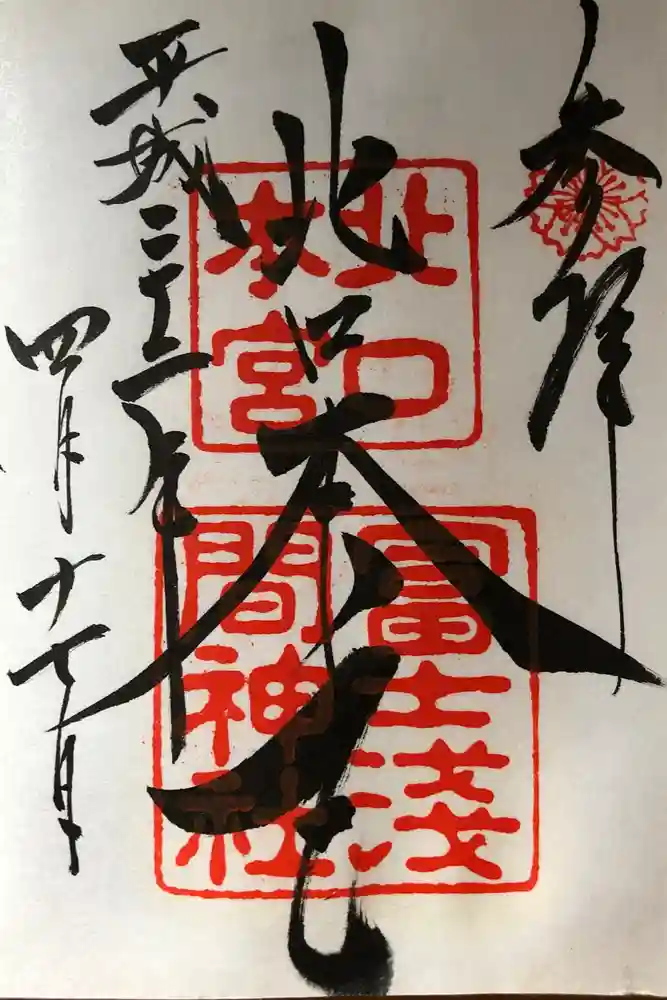 参拝
北口本宮
平成三十一年
四月十七日
北口
本宮
冨士淺
間神社